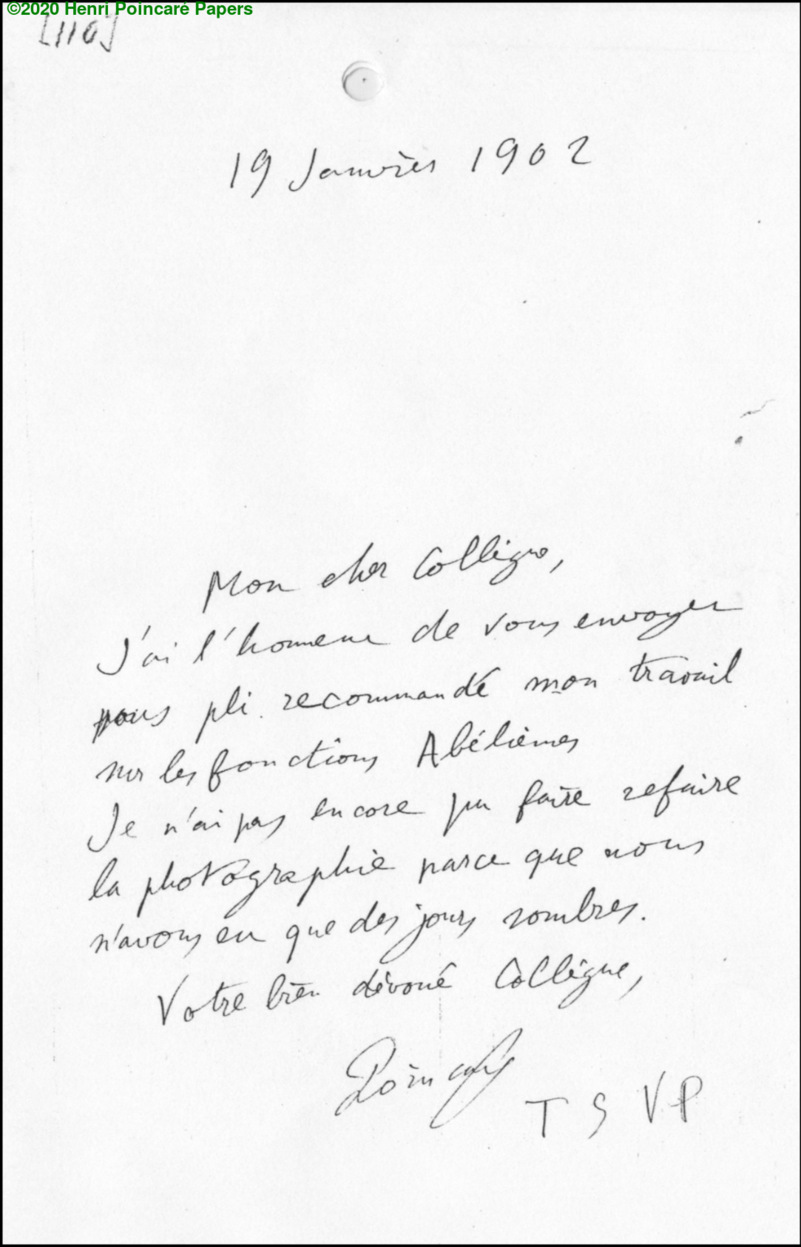 ©2020 Henri Poincaré Papers
[116]
19 Janvier 1902
Mon cher Collègue,
J'ai l'honneur de vous envoyer
sous pli recommandé mon travail
sur les fonctions Abéliennes
Je n'ai pas encore pu faire refaire
la photographie parce que nous
n'avons eu que des jours sombres.
Votre bien dévoué Collègue,
Poincaré
T S V P